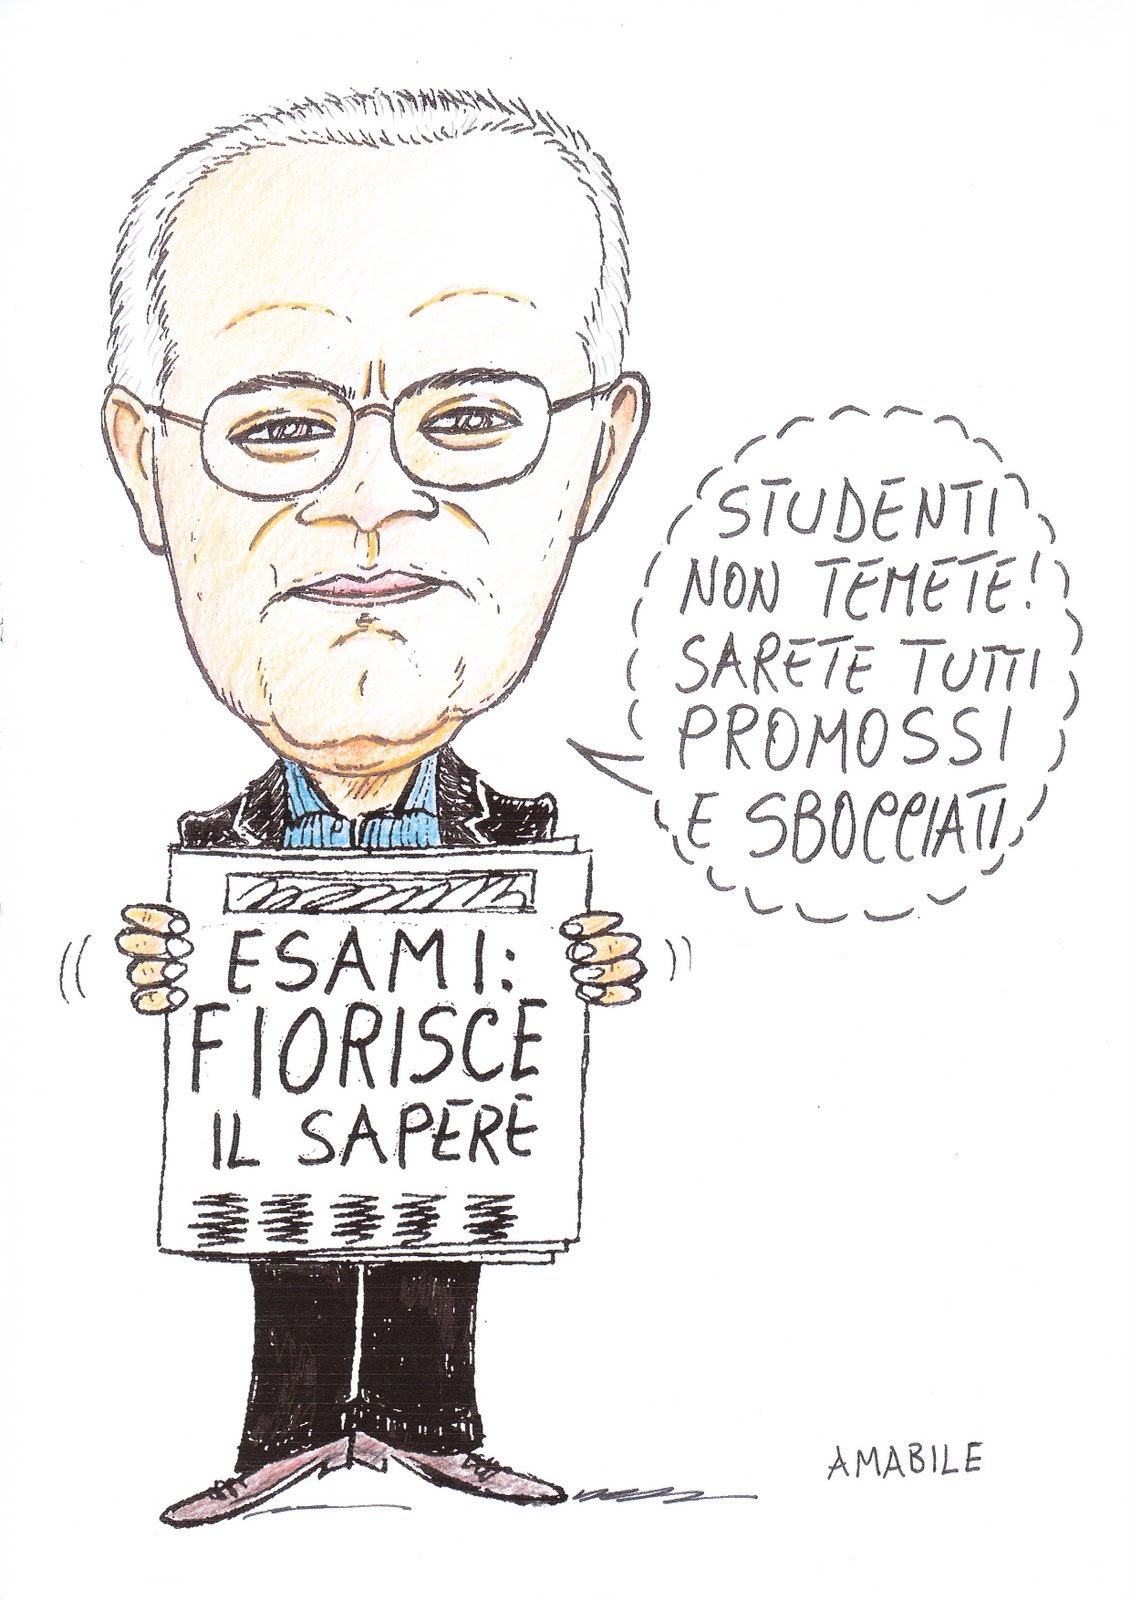 STUDENTI
NON TEMETE!
SARETE TUTTI
PROMOSSI
E SBOCCIATI
ESAMI:
FIORISCE
IL SAPERE
AMABILE